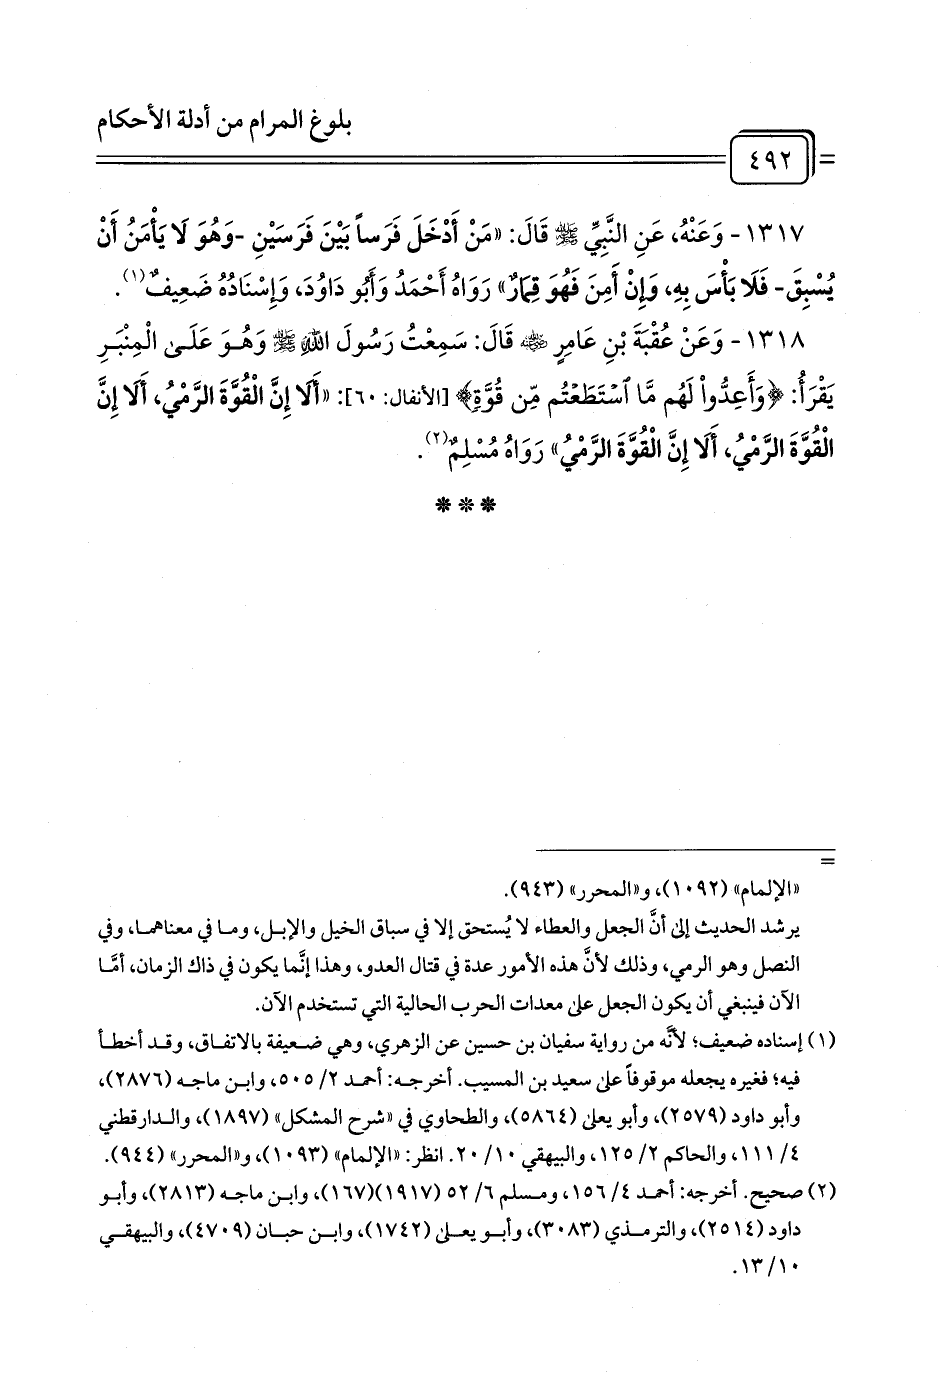 بلوغ المرام من أدلة الأحكام
٤٩٢
١٣١٧- وَعَنْهُ، عَنِ النَّبِيِّ ﷺ قَالَ: «مَنْ أَدْخَلَ فَرَساً بَيْنَ فَرَسَيْنِ -وَهُوَ لَا يَأْمَنُ أَنْ
يُسْبِقَ- فَلَا بَأْسَ بِهِ، وَإِنْ أَمِنَ فَهُوَ قِمَارٌ» رَوَاهُ أَحْمَدُ وَأَبُو دَاوُدَ، وَإِسْنَادُهُ ضَعِيفٌ(١).
١٣١٨- وَعَنْ عُقْبَةَ بْنِ عَامِرٍ ﵁ قَالَ: سَمِعْتُ رَسُولَ اللهِ ﷺ وَهُوَ عَلَى الْمِنْبَرِ
يَقْرَأُ: ﴿وَأَعِدُّواْ لَهُم مَّا ٱسْتَطَعْتُم مِّن قُوَّةٍ﴾ [الأنفال: ٦٠]: «أَلَا إِنَّ الْقُوَّةَ الرَّمْيُ، أَلَا إِنَّ
الْقُوَّةَ الرَّمْيُ، أَلَا إِنَّ الْقُوَّةَ الرَّمْيُ» رَوَاهُ مُسْلِمٌ(٢).
***
=
«الإلمام» (١٠٩٢)، و«المحرر» (٩٤٣).
يرشد الحديث إلى أنَّ الجعل والعطاء لا يُستحق إلا في سباق الخيل والإبل، وما في معناهما، وفي
النصل وهو الرمي، وذلك لأنَّ هذه الأمور عدة في قتال العدو، وهذا إنَّما يكون في ذاك الزمان، أمَّا
الآن فينبغي أن يكون الجعل على معدات الحرب الحالية التي تستخدم الآن.
(١) إسناده ضعيف؛ لأنَّه من رواية سفيان بن حسين عن الزهري، وهي ضعيفة بالاتفاق، وقد أخطأ
فيه؛ فغيره يجعله موقوفاً على سعيد بن المسيب. أخرجه: أحمد ٢/ ٥٠٥، وابن ماجه (٢٨٧٦)،
وأبو داود (٢٥٧٩)، وأبو يعلى (٥٨٦٤)، والطحاوي في «شرح المشكل» (١٨٩٧)، والدارقطني
٤/ ١١١، والحاكم ٢/ ١٢٥، والبيهقي ١٠/ ٢٠. انظر: «الإلمام» (١٠٩٣)، و«المحرر» (٩٤٤).
(٢) صحيح. أخرجه: أحمد ٤/ ١٥٦، ومسلم ٦/ ٥٢ (١٩١٧)(١٦٧)، وابن ماجه (٢٨١٣)، وأبو
داود (٢٥١٤)، والترمذي (٣٠٨٣)، وأبو يعلى (١٧٤٢)، وابن حبان (٤٧٠٩)، والبيهقي
١٠/ ١٣.